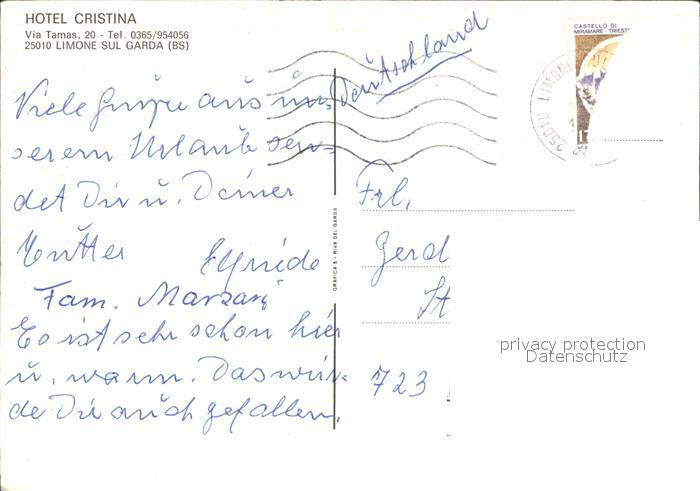 HOTEL CRISTINA
Via Tamas, 20 - Tel. 0365/954056
25010 LIMONE SUL GARDA (BS)
CASTELLO DI
MIRAMARE - TRIESTE
25010 LIMONE SUL
Deutschland
Viele Grüße aus un-
serem Urlaub sen-
det Dir u. Deiner
Mutter
Fam.
Es ist sehr schön hier
u. warm. Das wür-
de Dir auch gefallen.
GRAFICA 5 - RIVA DEL GARDA
Frl.
Gerd
St
723
privacy protection
Datenschutz